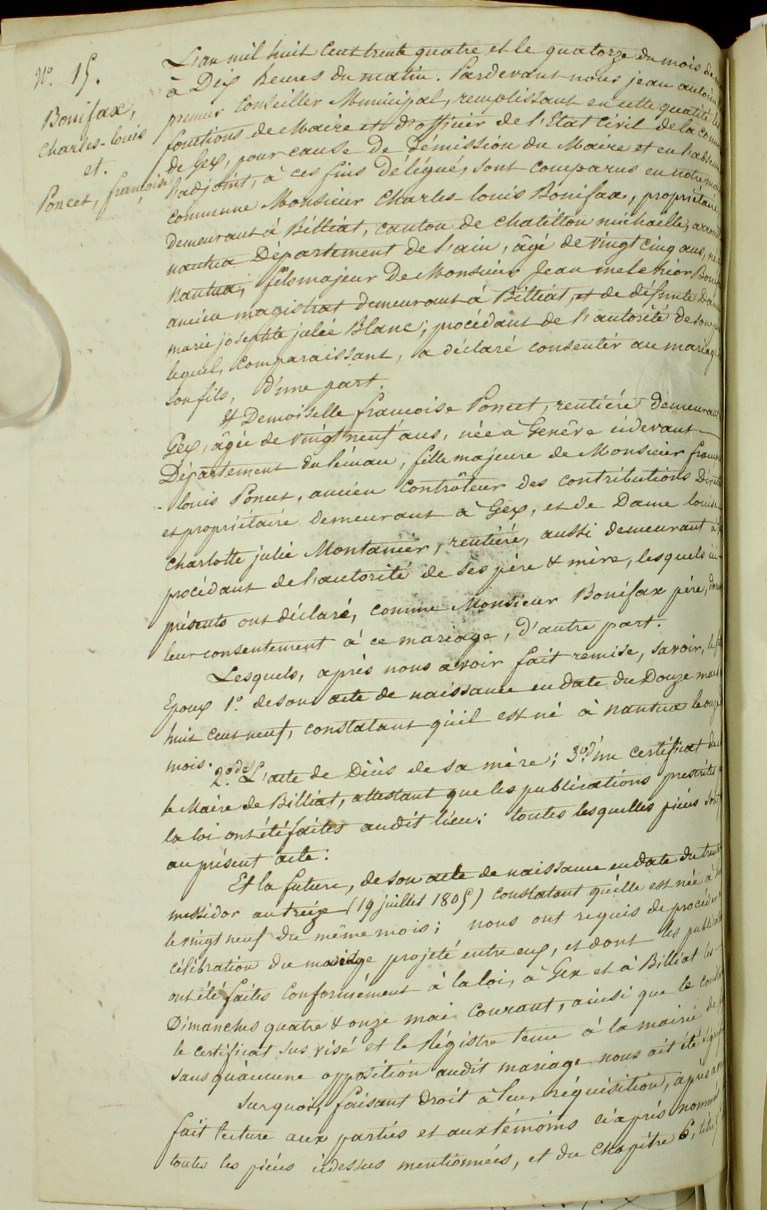 N.º 15.
Bonifax,
Charles-louis
et.
Poncet, françoise
L'an mil huit Cent trente quatre et le quatorze du mois de
à Dix heures du matin. Pardevant nous jean antoine
premier Conseiller Municipal, remplissant en cette qualité les
fonctions de Maire et d'officier de l'Etat Civil de la com
de Gex, pour cause de Démission du Maire et en l'absence
l'adjoint, à ces fins délégué, sont comparus en notre mai
commune Monsieur Charles-louis Bonifax, propriétaire
demeurant à Billiat, canton de Chatillon michaille, arrond
nantua Département de l'ain, âgé de vingt cinq ans, né
Nantua; fils majeur de Monsieur Jean melchior Bonif
ancien magistrat demeurant à Billiat, et de défunte Dame
marie josephte julie Blanc; procédant de l'autorité de son
lequel, comparaissant, a déclaré consentir au mariage
son fils, d'une part.
Et Demoiselle françoise Poncet, rentière demeurant
Gex, âgée de vingt neuf ans, née à Genève cidevant
Département du léman, fille majeure de Monsieur franço
-louis Poncet, ancien Contrôleur des contributions Directe
et propriétaire demeurant à Gex, et de Dame louise
charlotte julie Montanier, rentière, aussi demeurant à
procédant de l'autorité de ses père & mère, lesquels ici
présents ont déclaré, comme Monsieur Bonifax père, donner
leur consentement à ce mariage, d'autre part.
Lesquels, après nous avoir fait remise, savoir, le
Epoux 1.º de son acte de naissance en date du Douze mars
huit cent neuf, constatant qu'il est né à nantua le onze
mois. 2.º de L'acte de Décès de sa mère; 3.º d'un certificat de
le Maire de Billiat, attestant que les publications prescrites
la loi ont été faites audit lieu: toutes lesquelles pièces sont
au présent acte:
Et la future, de son acte de naissance en date du trente
messidor an treize (19 juillet 1805) constatant qu'elle est née à
le vingt neuf du même mois; nous ont requis de procéder
célébration du mariage projeté entre eux, et dont les publica
ont été faites Conformément à la loi, à Gex et à Billiat les
Dimanches quatre & onze mai courant, ainsi que le const
le certificat sus visé et le Régistre tenu à la mairie de
sans qu'aucune opposition audit mariage nous ait été
Sur quoi, faisant droit à leur réquisition, après
fait lecture aux parties et aux témoins ci après nommés
toutes les pièces cidessus mentionnées, et du chapitre 6, titre